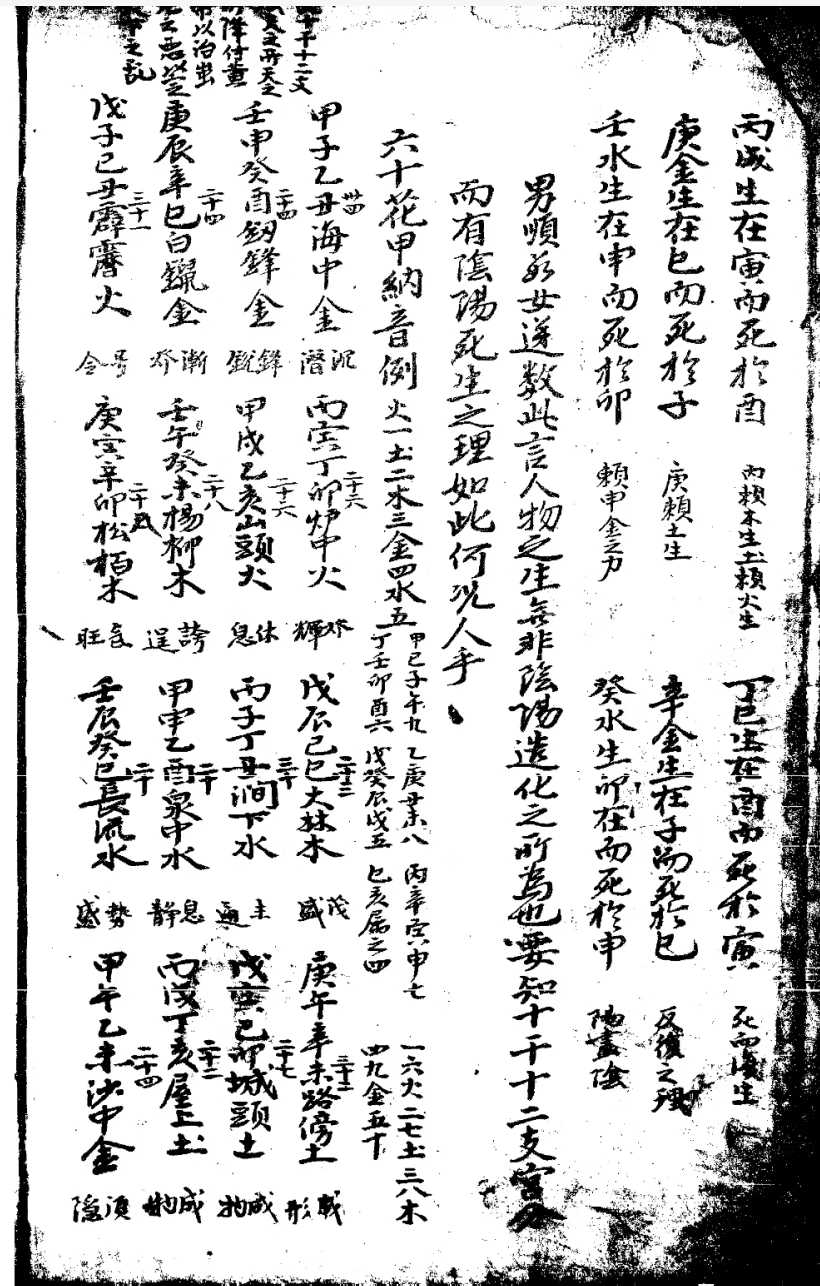 丙戊生在寅而死於酉 丙賴木生土賴火生 丁己生在酉而死於寅 死而復生
庚金生在巳而死於子 庚賴土生 辛金生在子而死於巳 反復之理
壬水生在申而死於卯 賴申金之力 癸水生卯在而死於申 陽盡陰
男順女逆數此言人物之生無非陰陽造化之所為也要知十干十二支宮分
而有陰陽死生之理如此何況人乎
六十花甲納音例 火一土二木三金四水五 甲己子午九 乙庚丑未八 丙辛寅申七 一六火二七土三八木
丁壬卯酉六 戊癸辰戌五 巳亥屬之四 四九金五十
甲子乙丑海中金 卅四 沉潛 丙寅丁卯炉中火 二十六 輝 戊辰己巳大林木 二十三 茂盛 庚午辛未路傍土 三十二 形
壬申癸酉釰鋒金 二十四 鋒銳 甲戌乙亥山頭火 二十六 休息 丙子丁丑澗下水 三十 通 戊寅己卯城頭土 二十七 成物
庚辰辛巳白鑞金 二十四 漸 壬午癸未楊柳木 二十八 誇逞 甲申乙酉泉中水 二十 息静 丙戌丁亥屋上土 二十二 成物
戊子己丑霹靂火 三十一 号令 庚寅辛卯松栢木 旺 壬辰癸巳長流水 二十 勢盛 甲午乙未沙中金 二十四 須隐
十干十二支